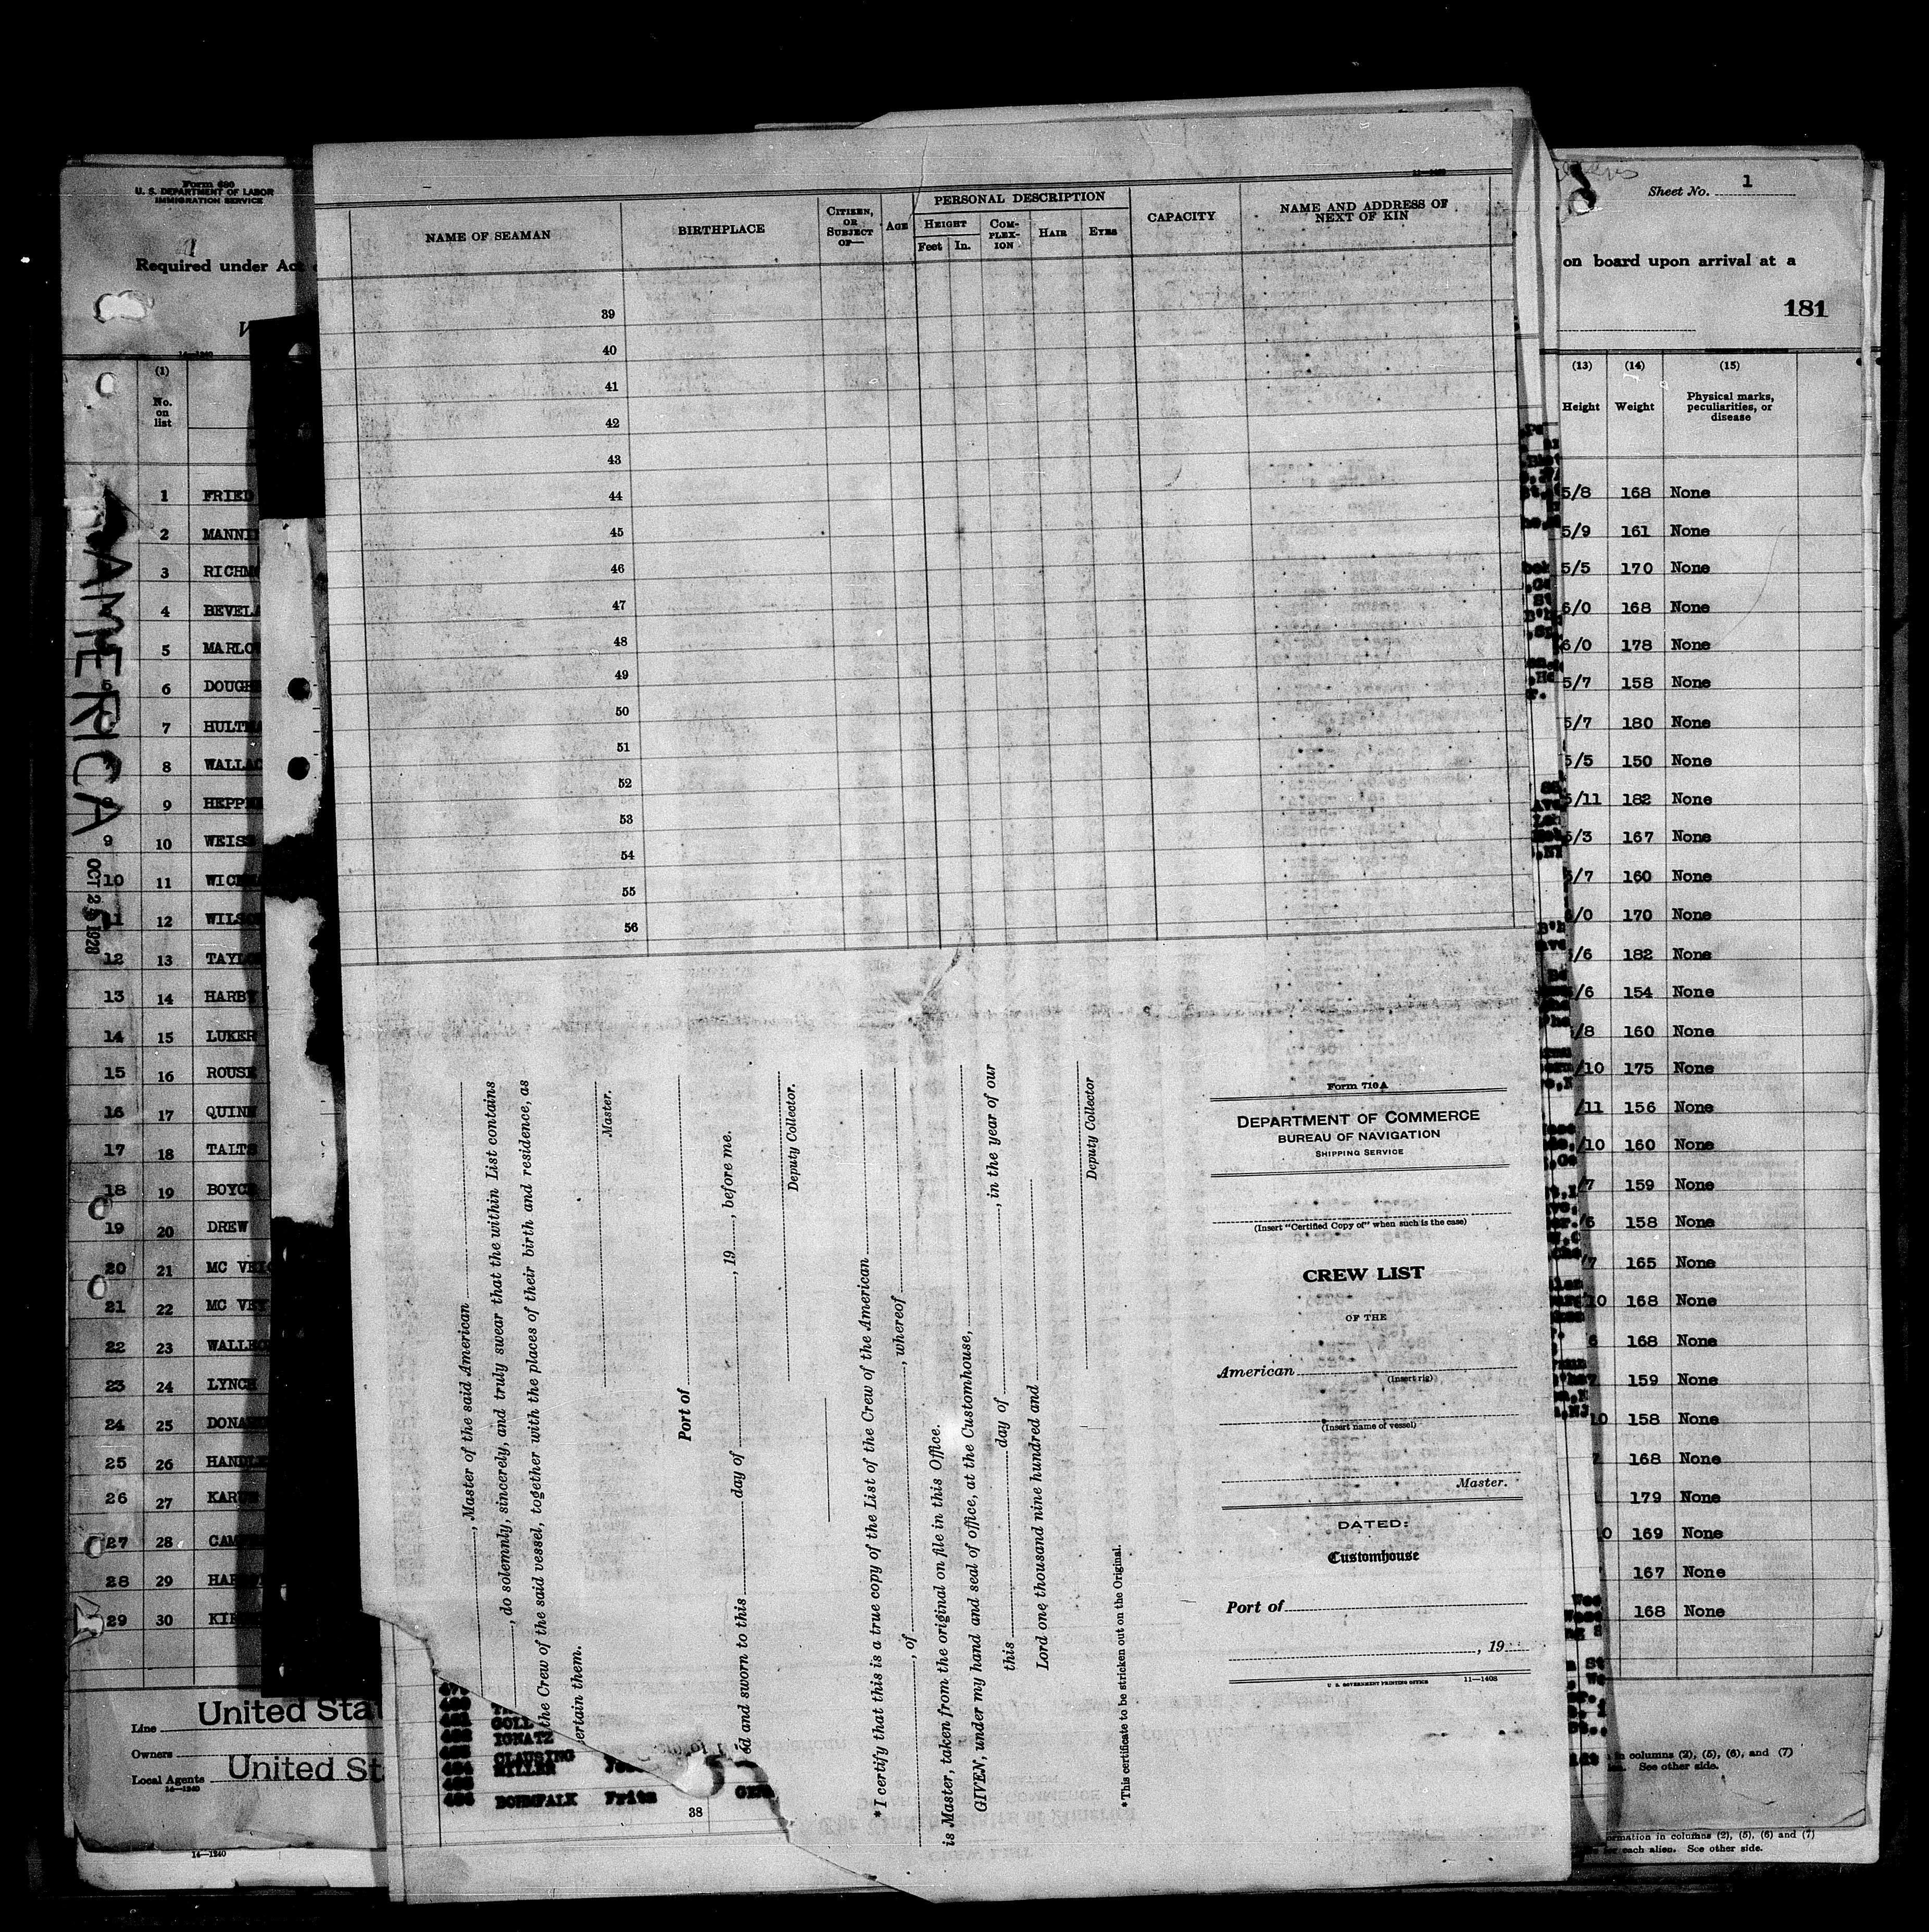 Form 680
U. S. DEPARTMENT OF LABOR
IMMIGRATION SERVICE
Required under Act
14—1240
(1)
No.
on
list
1 FRIED
2 MANNI
3 RICHM
4 BEVELA
5 MARLO
6 DOUGH
7 HULTM
8 WALLAC
9 HEPP
9 10 WEISS
10 11 WIC
11 12 WILSO
12 13 TAYLO
13 14 HARBY
14 15 LUKER
15 16 ROUSE
16 17 QUINN
17 18 TALTS
18 19 BOYCE
19 20 DREW
20 21 MC VEI
21 22 MC VEY
22 23 WALL
23 24 LYNCH
24 25 DONA
25 26 HANDL
26 27 KARU
27 28 CAM
28 29 HAR
29 30 KI
AMERICA
OCT 2 1928
Line United Stat
Owners
Local Agents United St
14—1240
14—1240
11—1408
NAME OF SEAMAN
BIRTHPLACE
CITIZEN, OR SUBJECT OF—
AGE
PERSONAL DESCRIPTION
HEIGHT
Feet In.
COM-PLEX-ION
HAIR
EYES
CAPACITY
NAME AND ADDRESS OF NEXT OF KIN
39
40
41
42
43
44
45
46
47
48
49
50
51
52
53
54
55
56
, Master of the said American
, do solemnly, sincerely, and truly swear that the within List contains
the Crew of the said vessel, together with the places of their birth and residence, as
certain them.
Master.
Port of
ed and sworn to this day of , 19 , before me.
Deputy Collector.
*I certify that this is a true copy of the List of the Crew of the American
, of , whereof
is Master, taken from the original on file in this Office.
GIVEN, under my hand and seal of office, at the Customhouse,
this day of , in the year of our
Lord one thousand nine hundred and
Deputy Collector
*This certificate to be stricken out on the Original.
Form 710A
DEPARTMENT OF COMMERCE
BUREAU OF NAVIGATION
SHIPPING SERVICE
(Insert "Certified Copy of" when such is the case)
CREW LIST
OF THE
American
(Insert rig)
(Insert name of vessel)
Master.
DATED:
Customhouse
Port of
, 19
U. S. GOVERNMENT PRINTING OFFICE 11—1408
480
481 GOLL
482 IGNATZ
483 CLAUSING
484 MILLER
485
486 BOHMFALK Fritz GER
38
Sheet No. 1
on board upon arrival at a
181
(13) (14) (15)
Height Weight Physical marks, peculiarities, or disease
5/8 168 None
5/9 161 None
5/5 170 None
6/0 168 None
6/0 178 None
5/7 158 None
5/7 180 None
5/5 150 None
5/11 182 None
5/3 167 None
5/7 160 None
/0 170 None
/6 182 None
/6 154 None
/8 160 None
/10 175 None
/11 156 None
/10 160 None
/7 159 None
/6 158 None
/7 165 None
10 168 None
6 168 None
7 159 None
10 158 None
7 168 None
179 None
0 169 None
167 None
168 None
in columns (2), (5), (6), and (7)
See other side.
ormation in columns (2), (5), (6) and (7)
for each alien. See other side.